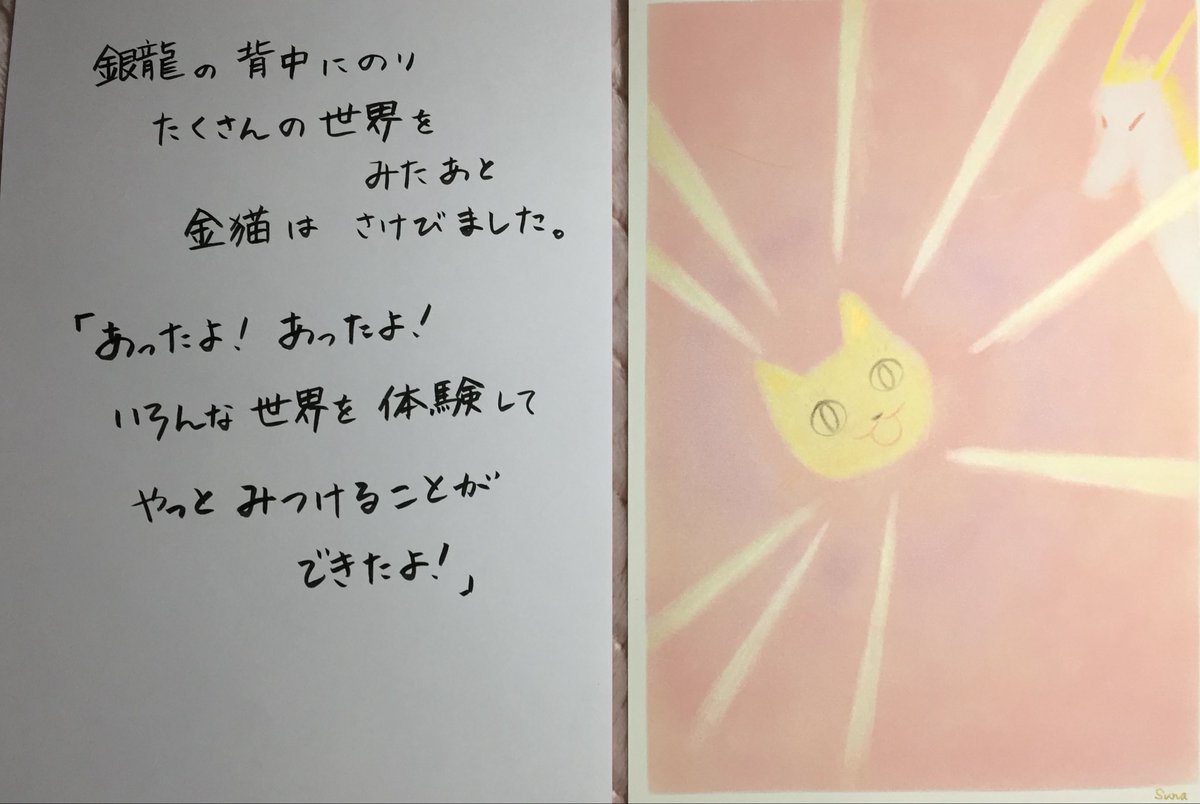 銀龍の背中にのり
たくさんの世界を
みたあと
金猫は さけびました。
「あったよ! あったよ!
いろんな世界を体験して
やっとみつけることが
できたよ!」
Suna